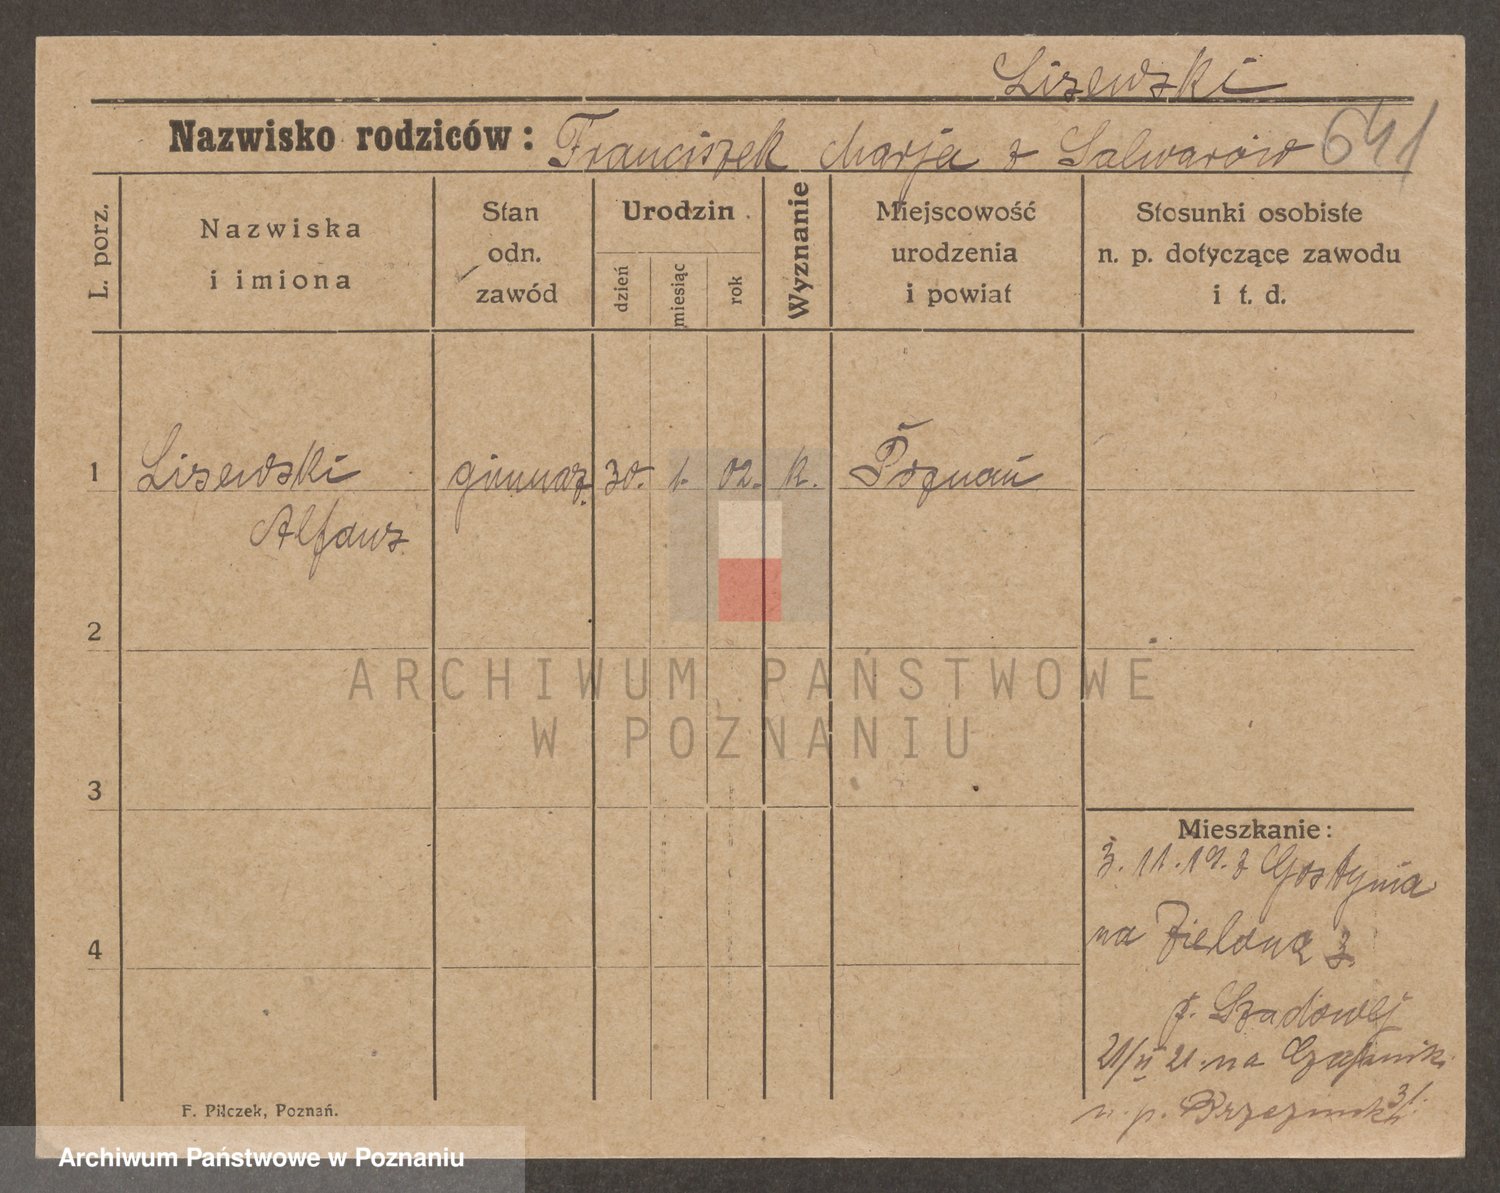 Lisewski
Nazwisko rodziców: Franciszek Marja z Salwarów 641
L. porz.
Nazwiska
i imiona
Stan
odn.
zawód
Urodzin
dzień
miesiąc
rok
Wyznanie
Miejscowość
urodzenia
i powiat
Stosunki osobiste
n. p. dotyczące zawodu
i t. d.
1 Lisewski gimnaz. 30. 1. 02. k. Poznań
Alfons
2
ARCHIWUM PAŃSTWOWE
W POZNANIU
3
Mieszkanie:
3. 11. 19. z Gostynia
4
na Zieloną 3
p. Szadowej
21/VI 21. na
n. p.
F. Pilczek, Poznań.
Archiwum Państwowe w Poznaniu